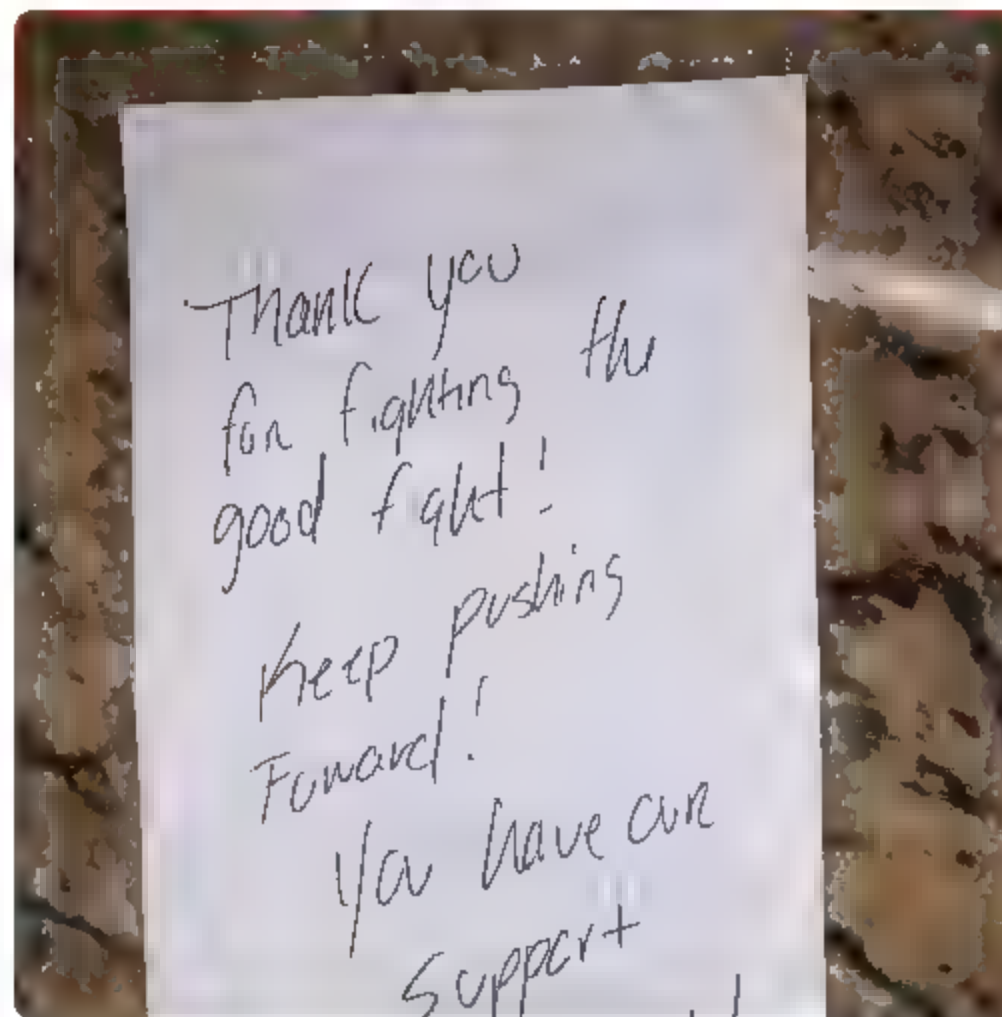 Thank you
for fighting the
good fight!
Keep pushing
Foward!
You have our
Support